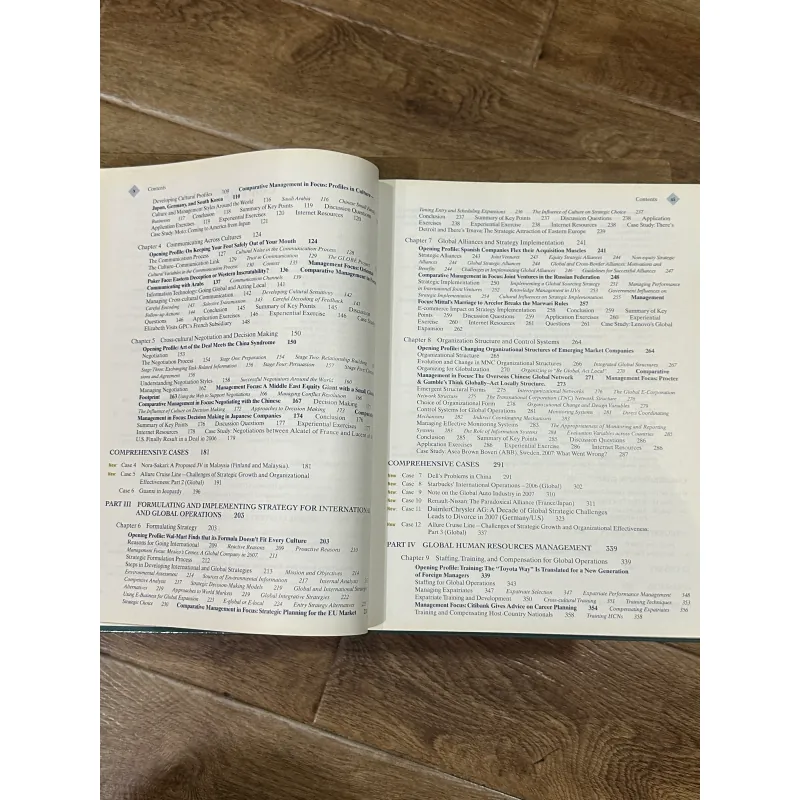 x Contents
Developing Cultural Profiles 108 Comparative Management in Focus: Profiles in Culture
Japan, Germany, and South Korea 110
Culture and Management Styles Around the World 116 Saudi Arabia 116 Chinese Small Family
Businesses 117 Conclusion 118 Summary of Key Points 119 Discussion Questions
Application Exercises 119 Experiential Exercises 120 Internet Resources 120
Case Study: Moto: Coming to America from Japan 121
Chapter 4 Communicating Across Cultures 124
Opening Profile: On Keeping Your Foot Safely Out of Your Mouth 124
The Communication Process 127 Cultural Noise in the Communication Process 128
The Culture-Communication Link 129 Trust in Communication 129 The GLOBE Project
Cultural Variables in the Communication Process 130 Context Management Focus: Oriental
Poker Face: Eastern Deception or Western Inscrutability? 136 Comparative Management in
Communicating with Arabs 137 Communication Channels 139
Information Technology: Going Global and Acting Local 141
Managing Cross-cultural Communication 142 Developing Cultural Sensitivity 142
Careful Encoding Selective Transmission Careful Decoding of Feedback
Follow-up Actions 144 Conclusion 145 Summary of Key Points 145 Discussion
Questions 146 Application Exercises 146 Experiential Exercise 146 Case
Elizabeth Visits GPC's French Subsidiary 148
Chapter 5 Cross-cultural Negotiation and Decision Making 150
Opening Profile: Art of the Deal Meets the China Syndrome 150
Negotiation 153
The Negotiation Process 154 Stage One: Preparation 154 Stage Two: Relationship Building
Stage Three: Exchanging Task-Related Information 156 Stage Four: Persuasion 157 Stage Five:
and Agreement 158
Understanding Negotiation Styles 158 Successful Negotiators Around the World 160
Managing Negotiation 162 Management Focus: A Middle East Equity Giant with a Small
Footprint 163 Using the Web to Support Negotiations Managing Conflict Resolution 166
Comparative Management in Focus: Negotiating with the Chinese 167 Decision Making
The Influence of Culture on Decision Making 172 Approaches to Decision Making 173
Management in Focus: Decision Making in Japanese Companies 174 Conclusion 176
Summary of Key Points 176 Discussion Questions 177 Experiential Exercises 177
Internet Resources 178 Case Study: Negotiations between Alcatel of France and Lucent of
U.S. Finally Result in a Deal in 2006 178
COMPREHENSIVE CASES 181
New Case 4 Nora-Sakari: A Proposed JV in Malaysia (Finland and Malaysia). 181
New Case 5 Allure Cruise Line – Challenges of Strategic Growth and Organizational
Effectiveness: Part 2 (Global) 191
Case 6 Guanxi in Jeopardy 196
PART III FORMULATING AND IMPLEMENTING STRATEGY FOR INTERNATIONAL
AND GLOBAL OPERATIONS 205
Chapter 6 Formulating Strategy 205
Opening Profile: Wal-Mart Finds that its Formula Doesn't Fit Every Culture 205
Reasons for Going International 209 Reactive Reasons 209 Proactive Reasons 210
Management Focus: Mexico's Cemex: A Global Company in 2007. 211
Strategic Formulation Process 212
Steps in Developing International and Global Strategies 213 Mission and Objectives 214
Environmental Assessment 214 Sources of Environmental Information 217 Internal Analysis
Competitive Analysis 217 Strategic Decision-Making Models 219 Global and International Strategic
Alternatives 220 Approaches to World Markets 220 Global Integrative Strategies 222
Using E-Business for Global Expansion 223 E-global or E-local 224 Entry Strategy Alternatives
Strategic Choice 230 Comparative Management in Focus: Strategic Planning for the EU Market
Contents xi
Timing Entry and Scheduling Expansions 236 The Influence of Culture on Strategic Choice 237
Conclusion 237 Summary of Key Points 237 Discussion Questions 238 Application
Exercises 238 Experiential Exercise 238 Internet Resources 238 Case Study: There's
Detroit and There's Trnava: The Strategic Attraction of Eastern Europe 239
Chapter 7 Global Alliances and Strategy Implementation 241
Opening Profile: Spanish Companies Flex their Acquisition Muscles 241
Strategic Alliances 243 Joint Ventures 243 Equity Strategic Alliances 244 Non-equity Strategic
Alliances 244 Global Strategic Alliances 244 Global and Cross-Border Alliances: Motivations and
Benefits 244 Challenges in Implementing Global Alliances 246 Guidelines for Successful Alliances 247
Comparative Management in Focus: Joint Ventures in the Russian Federation 248
Strategic Implementation 250 Implementing a Global Sourcing Strategy 251 Managing Performance
in International Joint Ventures 252 Knowledge Management in IJVs 253 Government Influences on
Strategic Implementation 254 Cultural Influences on Strategic Implementation 255 Management
Focus: Mittal's Marriage to Arcelor Breaks the Marwari Rules 257
E-commerce Impact on Strategy Implementation 258 Conclusion 259 Summary of Key
Points 259 Discussion Questions 259 Application Exercises 260 Experiential
Exercise 260 Internet Resources 261 Questions 261 Case Study: Lenovo's Global
Expansion 262
Chapter 8 Organization Structure and Control Systems 264
Opening Profile: Changing Organizational Structures of Emerging Market Companies 264
Organizational Structure 265
Evolution and Change in MNC Organizational Structures 266 Integrated Global Structures 267
Organizing for Globalization 270 Organizing to "Be Global, Act Local" 270 Comparative
Management in Focus: The Overseas Chinese Global Network 271 Management Focus: Procter
& Gamble's Think Globally-Act Locally Structure. 273
Emergent Structural Forms 275 Interorganizational Networks 276 The Global E-Corporation
Network Structure 276 The Transnational Corporation (TNC) Network Structure 277
Choice of Organizational Form 278 Organizational Change and Design Variables 279
Control Systems for Global Operations 281 Monitoring Systems 281 Direct Coordinating
Mechanisms 281 Indirect Coordinating Mechanisms 283
Managing Effective Monitoring Systems 283 The Appropriateness of Monitoring and Reporting
Systems 283 The Role of Information Systems 284 Evaluation Variables across Countries 285
Conclusion 285 Summary of Key Points 285 Discussion Questions 286
Application Exercises 286 Experiential Exercise 286 Internet Resources 286
Case Study: Asea Brown Boveri (ABB), Sweden, 2007: What Went Wrong? 287
COMPREHENSIVE CASES 291
New Case 7 Dell's Problems in China 291
New Case 8 Starbucks' International Operations – 2006 (Global) 302
New Case 9 Note on the Global Auto Industry in 2007 310
New Case 10 Renault-Nissan: The Paradoxical Alliance (France/Japan) 311
New Case 11 DaimlerChrysler AG: A Decade of Global Challenges
Leads to Divorce in 2007 (Germany/U.S) 323
New Case 12 Allure Cruise Line – Challenges of Strategic Growth and Organizational Effectiveness:
Part 3 (Global) 337
PART IV GLOBAL HUMAN RESOURCES MANAGEMENT 339
Chapter 9 Staffing, Training, and Compensation for Global Operations 339
Opening Profile: Training: The "Toyota Way" Is Translated for a New Generation
of Foreign Managers 339
Staffing for Global Operations 343
Managing Expatriates 347 Expatriate Selection 347 Expatriate Performance Management 348
Expatriate Training and Development 350 Cross-cultural Training 351 Training Techniques 353
Management Focus: Citibank Gives Advice on Career Planning 354 Compensating Expatriates 356
Training and Compensating Host-Country Nationals 358 Training HCNs 358